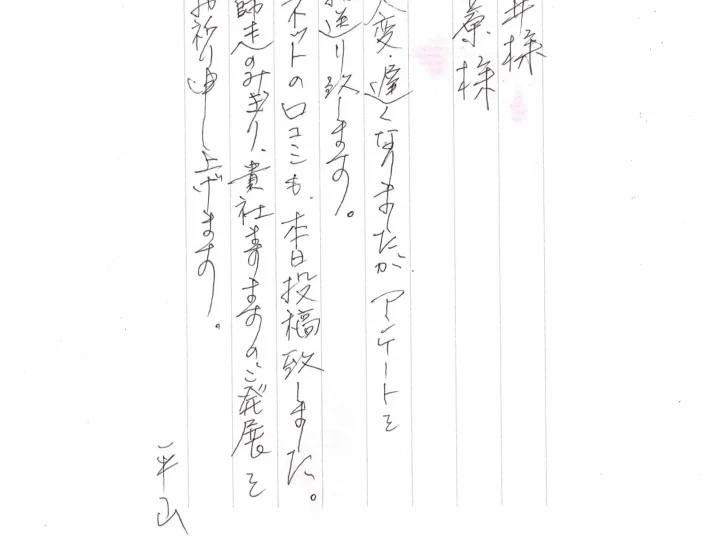 井様
原様
大変遅くなりましたが、アンケートを
お送り致します。
ネットの口コミも、本日投稿致しました。
師走のみぎり、貴社ますますのご発展を
お祈り申し上げます。
平山